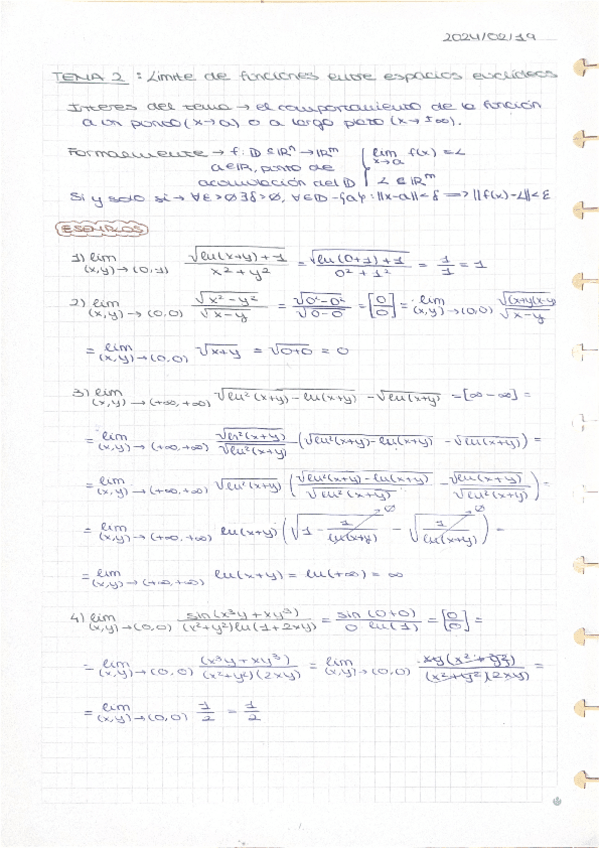 2024/02/19
TEMA 2 : Límite de funciones entre espacios euclídeos
Interes del tema → el comportamiento de la función
a un punto (x→a) o a largo plazo (x→ ±∞).
Formalmente → f: D ⊆ ℝⁿ → ℝᵐ { lim x→a f(x) = L
a ∈ ℝ, punto de
acumulación del D { L ∈ ℝᵐ
Si y solo si → ∀ε > 0 ∃δ > 0, ∀∈D - {a} : ||x-a|| < δ ⟹ ||f(x)-L|| < ε
EJEMPLOS
1) lim (x,y)→(0,1) √(ln(x+y)+1) / (x²+y²) = √(ln(0+1)+1) / (0²+1²) = 1/1 = 1
2) lim (x,y)→(0,0) √(x²-y²) / √(x-y) = √(0²-0²) / √(0-0) = [0/0] = lim (x,y)→(0,0) √((x+y)(x-y)) / √(x-y)
= lim (x,y)→(0,0) √(x+y) = √(0+0) = 0
3) lim (x,y)→(+∞,+∞) √(ln²(x+y) - ln(x+y)) - √(ln(x+y)) = [∞-∞] =
= lim (x,y)→(+∞,+∞) √(ln²(x+y)) / √(ln²(x+y)) · (√(ln²(x+y) - ln(x+y)) - √(ln(x+y))) =
= lim (x,y)→(+∞,+∞) √(ln²(x+y)) ( √(ln²(x+y) - ln(x+y)) / √(ln²(x+y)) - √(ln(x+y)) / √(ln²(x+y)) ) =
= lim (x,y)→(+∞,+∞) ln(x+y) ( √(1 - 1/ln(x+y)) - √(1/ln(x+y)) ) = 0 0
= lim (x,y)→(+∞,+∞) ln(x+y) = ln(+∞) = ∞
4) lim (x,y)→(0,0) sin(x³y + xy³) / ((x²+y²) ln(1+2xy)) = sin(0+0) / (0 ln(1)) = [0/0] =
= lim (x,y)→(0,0) (x³y + xy³) / ((x²+y²)(2xy)) = lim (x,y)→(0,0) xy(x²+y²) / ((x²+y²)(2xy)) =
= lim (x,y)→(0,0) 1/2 = 1/2